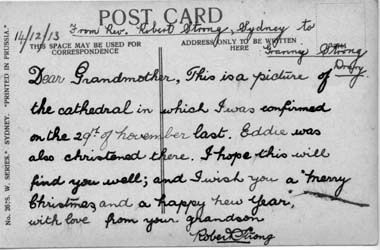 POST CARD
14/12/13 From Rev. Robert Strong, Sydney to
THIS SPACE MAY BE USED FOR
CORRESPONDENCE
ADDRESS ONLY TO BE WRITTEN
HERE
Granny Strong
Dear Grandmother, This is a picture of
the cathedral in which I was confirmed
on the 29th of november last. Eddie was
also christened there. I hope this will
find you well; and I wish you a "merry
Christmas, and a happy new Year,"
with love from your grandson
Robert Strong
No. 26/S. W. SERIES," SYDNEY. "PRINTED IN PRUSSIA."